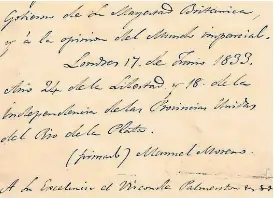 Gobierno de Su Magestad Britanica,
y á la opinion del Mundo imparcial.
Londres 17. de Junio 1833.
Año 24 de la Libertad, y 18. de la
Independencia de las Provincias Unidas
del Rio de la Plata.
(firmado) Manuel Moreno.
A Su Excelencia el Vizconde Palmerston